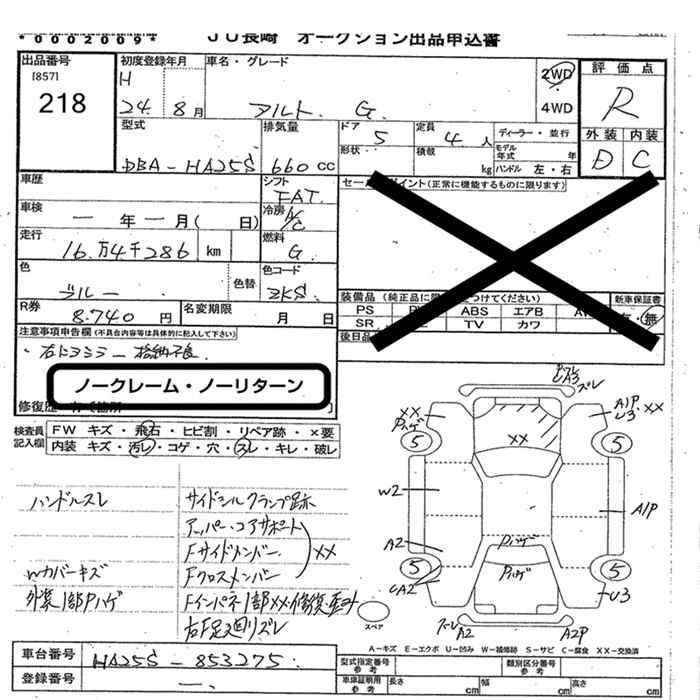 *0002009*
JU長崎 オークション出品申込書
出品番号
[857]
218
初度登録年月
H
24. 8月
車名・グレード
アルト G.
2WD
4WD
評価点
R
外装 内装
D C
型式
DBA-HA25S
排気量
660cc
ドア
5
定員
4人
ディーラー・並行
形状
積載
kg
モデル年式 年
ハンドル 左・右
車歴
シフト
FAT.
セールスポイント(正常に機能するものに限ります)
車検
一年一月( 日)
冷房
A/C
走行
16万4千286 km
燃料
G.
色
ブルー
色替
色コード
ZKS
R券
8.740円
名変期限
月 日
PS
ABS エアB
SR
TV カワ
新車保証書
・無
注意事項申告欄(不具合内容等は具体的に記入して下さい)
右ドアミラー 格納不良.
ノークレーム・ノーリターン
検査員記入欄
FW キズ・飛石・ヒビ割・リペア跡・×要
内装 キズ・汚レ・コゲ・穴・スレ・キレ・破レ
ハンドルスレ
サイドシルクランプ跡
アッパーコアサポート
Fサイドメンバー XX
Wカバーキズ
Fクロスメンバー
外装1部Pハゲ
Fインパネ1部XX・修復歴
右F足廻りズレ
ズレ
A3
XX
Pハゲ
A1P
U3・XX
5
5
XX
W2
A1P
A2
Pハゲ
Pハゲ
5
5
CA2
U3
ズレ
A2
A2P
スペア
A-キズ E-エクボ U-凹み W-補修跡 S-サビ C-腐食 XX-交換済
車台番号
HA25S-853275.
登録番号
一.
型式指定番号
参考
類別区分番号
参考
車庫証明用
参考
長さ cm
幅 cm
高さ cm